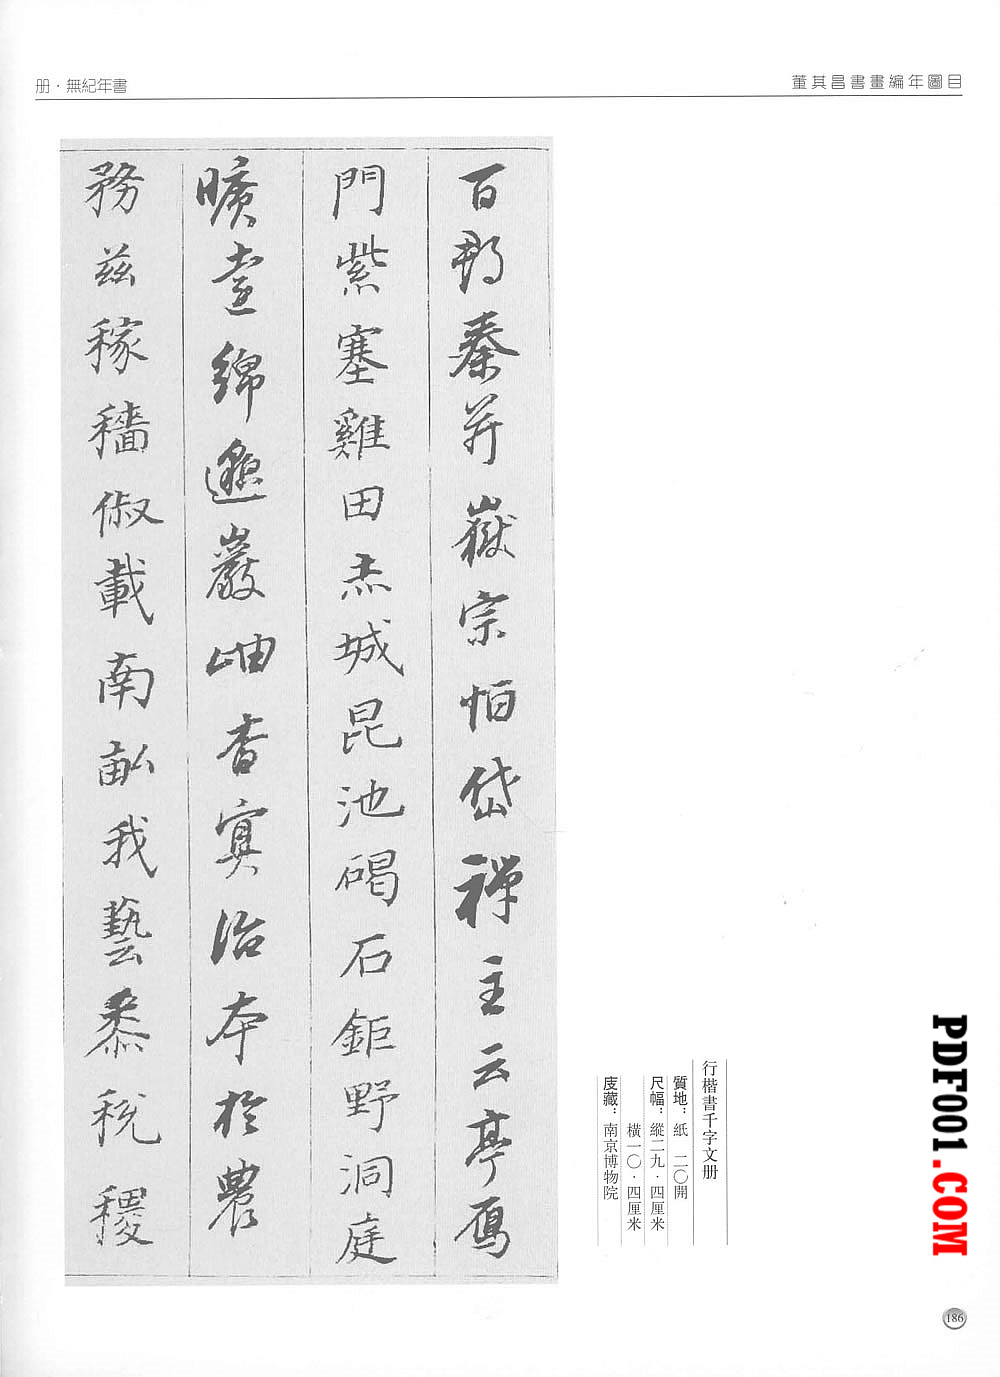 董其昌書畫編年圖目
册·無紀年書
百郡秦并嶽宗恒岱禪主云亭鴈
門紫塞雞田赤城昆池碣石鉅野洞庭
曠遠綿邈巖岫杳冥治本於農
務茲稼穡俶載南畝我藝黍稅稷
行楷書千字文册
質地：紙 二〇開
尺幅：縱二九·四厘米
橫一〇·四厘米
庋藏：南京博物院
PDF001.COM
186